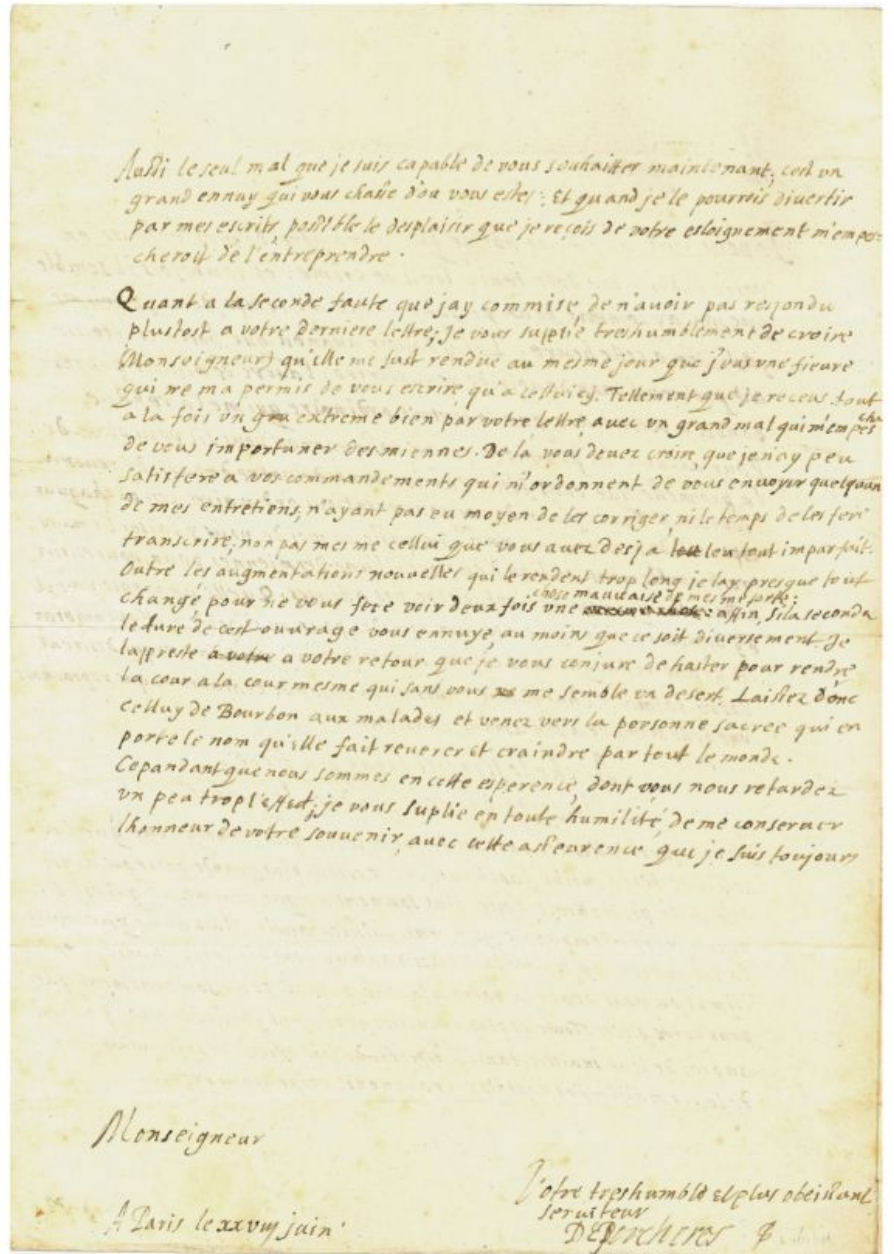 Aussi le seul mal que je suis capable de vous souhaitter maintenant, cest vn
grand ennuy qui vous chasse d'ou vous estes: Et quand je le pourrois diuertir
par mes escrits possible le desplaisir que je reçois de votre esloignement m'empes-
cheroit de l'entreprendre.
Quant a la seconde faute que jay commise, de n'auoir pas respondu
plustost a votre derniere lettre, Je vous supplie treshumblement de croire
(Monseigneur) qu'elle me fust rendue au mesme jour que j'eus vne fieure
qui ne ma permis de vous escrire qu'a celluici. Tellement que je receus tout
a la fois vn extreme bien par votre lettre, auec vn grand mal qui m'empescha
de vous importuner des miennes. De la vous deuez croire que je n'ay peu
satisfere a vos commandements qui m'ordonnent de vous enuoyer quelquun
de mes entretiens, n'ayant pas eu moyen de les corriger, ni le temps de les fere
transcrire, non pas mesme cellui que vous auez desja leu tout imparfait.
Outre les augmentations nouuelles qui le rendent trop long je lay presque tout
changé pour ne vous fere voir deux fois vne chose mauuaise de mesme sorte: affin, si la seconde
lecture de cest ouurage vous ennuye, au moins que ce soit diuersement Je
lappreste a votre retour que je vous conjure de haster pour rendre
la cour a la cour mesme qui sans vous me semble vn desert. Laissez donc
celluy de Bourbon aux malades et venez vers la personne sacree qui en
porte le nom qu'elle fait reuerer et craindre par tout le monde.
Cepandant que nous sommes en cette esperence, dont vous nous retardez
vn peu trop l'effect, je vous suplie en toute humilité, de me conseruer
lhonneur de votre souuenir, auec cette asseurence que je suis toujours
Monseigneur
Votre treshumble et plus obeissant
seruiteur
A Paris le xxviij juin